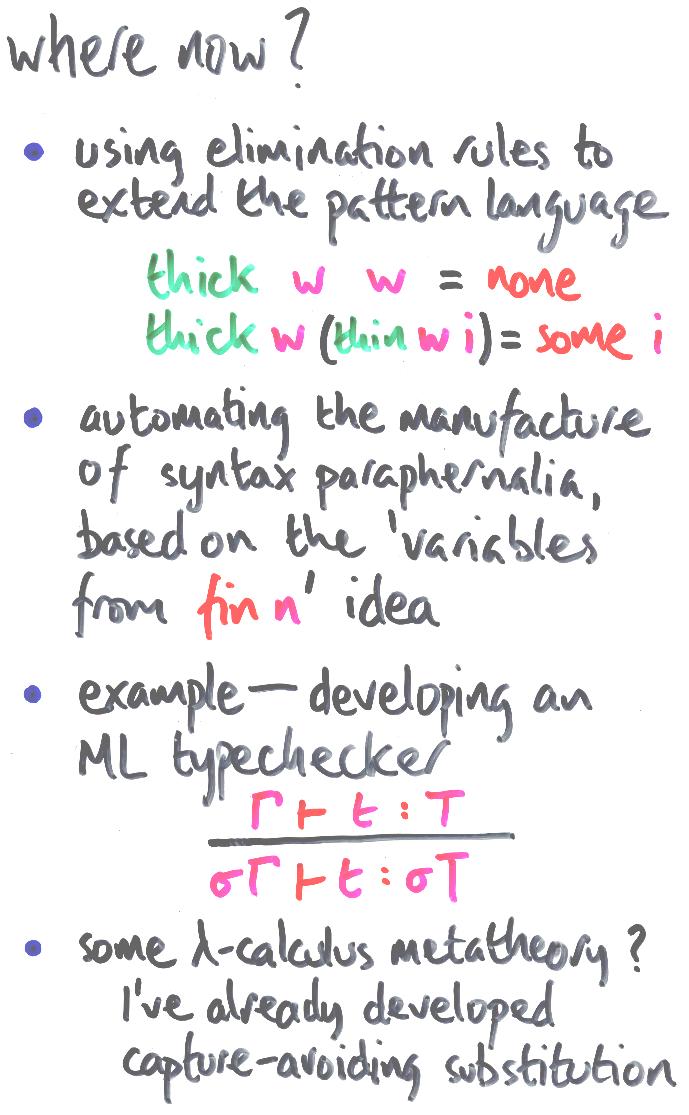 where now?
• using elimination rules to
extend the pattern language
thick w w = none
thick w (thin w i) = some i
• automating the manufacture
of syntax paraphernalia,
based on the 'variables
from fin n' idea
• example — developing an
ML typechecker
Γ ⊢ t : T
σΓ ⊢ t : σT
• some λ-calculus metatheory?
I've already developed
capture-avoiding substitution